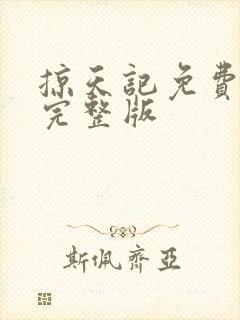 掠天記免費
完整版
斯佩齊亞